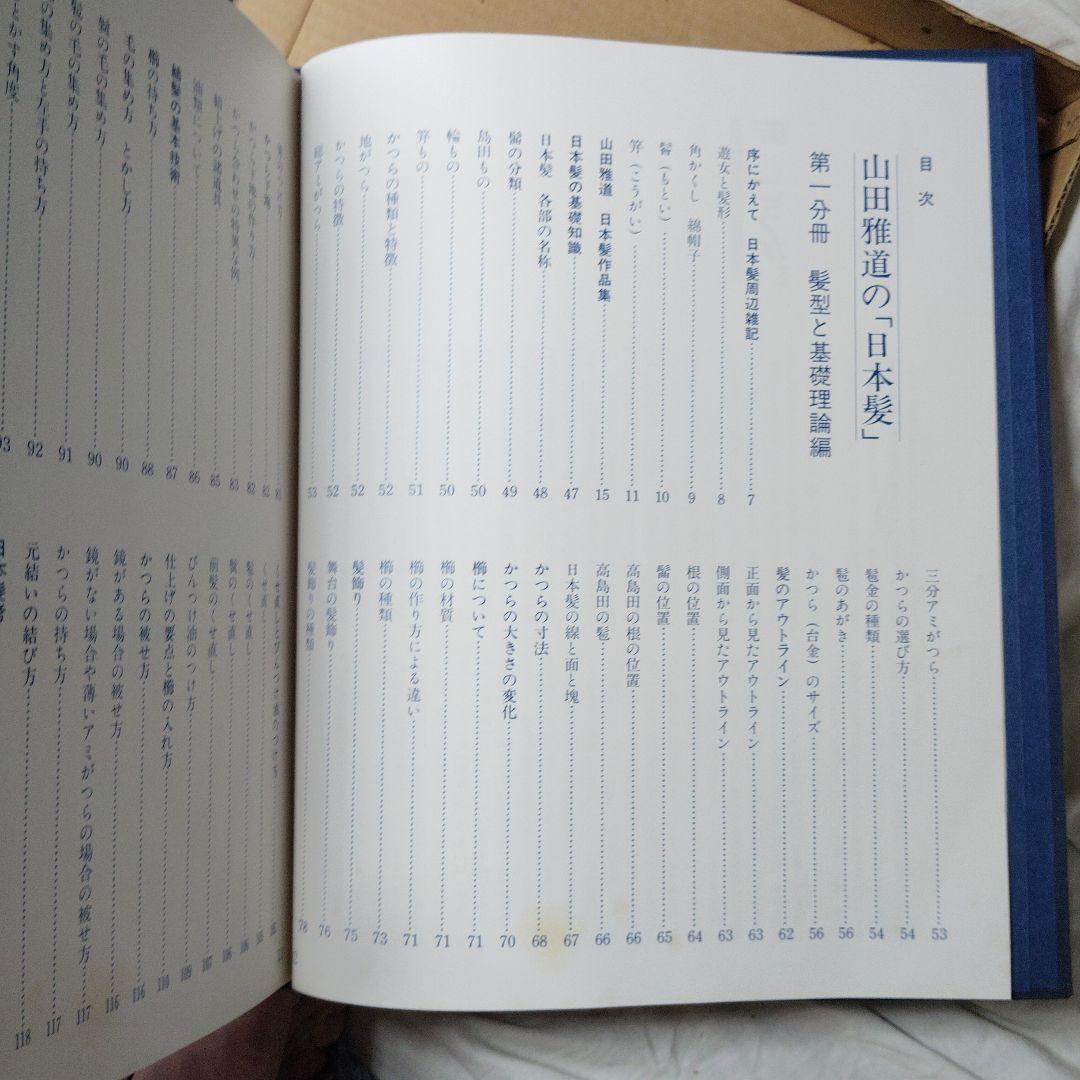 目次
山田雅道の「日本髪」
第一分冊　髪型と基礎理論編
序にかえて　日本髪周辺雑記……7
遊女と髪形……8
角かくし　綿帽子……9
髻（もとい）……10
笄（こうがい）……11
山田雅道　日本髪作品集……15
日本髪の基礎知識……47
日本髪　各部の名称……48
髷の分類……49
島田もの……50
輪もの……50
笄もの……51
かつらの種類と特徴……52
地がつら……52
かつらの特徴……52
総アミがつら……53
三分アミがつら……53
かつらの選び方……54
髱金の種類……54
髱のあがき……56
かつら（台金）のサイズ……56
髪のアウトライン……62
正面から見たアウトライン……63
側面から見たアウトライン……63
根の位置……64
髷の位置……65
高島田の根の位置……66
高島田の髱……66
日本髪の線と面と塊……67
かつらの寸法……68
かつらの大きさの変化……70
櫛について……71
櫛の材質……71
櫛の作り方による違い……71
櫛の種類……73
髪飾り……75
舞台の髪飾り……76
髪飾りの種類……78
かつら合わせの特異な例……83
結上げの諸道具……85
油類について……86
結髪の基本技術……87
櫛の持ち方……88
毛の集め方　とかし方……90
鬢の毛の集め方……90
髱の毛の集め方……91
の集め方と左手の持ち方……92
とかす角度……93
くせ直しとびんつけ油のつけ方
くせ直し
髱のくせ直し
鬢のくせ直し……106
前髪のくせ直し……107
びんつけ油のつけ方……109
仕上げの要点と櫛の入れ方……110
かつらの被せ方……116
鏡がある場合の被せ方……116
鏡がない場合や薄いアミがつらの場合の被せ方……117
かつらの持ち方……117
元結いの結び方……118